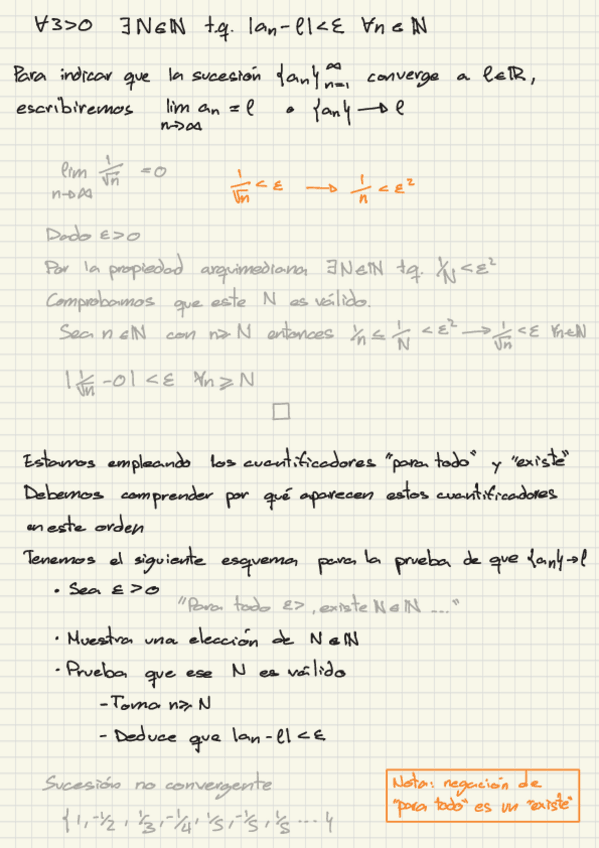 ∀ε>0 ∃N∈ℕ t.q. |an-l|<ε ∀n∈ℕ
Para indicar que la sucesión {an}∞n=1 converge a l∈ℝ,
escribiremos lim n→∞ an = l o {an} → l
lim n→∞ 1/√n = 0
1/√n < ε → 1/n < ε²
Dado ε>0
Por la propiedad arquimediana ∃N∈ℕ tq. 1/N < ε²
Comprobamos que este N es válido.
Sea n∈ℕ con n≥N entonces 1/n ≤ 1/N < ε² → 1/√n < ε ∀n∈ℕ
|1/√n - 0| < ε ∀n ≥ N
□
Estamos empleando los cuantificadores "para todo" y "existe"
Debemos comprender por qué aparecen estos cuantificadores
en este orden
Tenemos el siguiente esquema para la prueba de que {an}→l
· Sea ε>0
"Para todo ε>, existe N∈ℕ ...."
· Muestra una elección de N∈ℕ
· Prueba que ese N es válido
- Toma n≥N
- Deduce que |an-l|<ε
Sucesión no convergente
{1, -1/2, 1/3, -1/4, 1/5, -1/5, 1/5 ....}
Nota: negación de
"para todo" es un "existe"